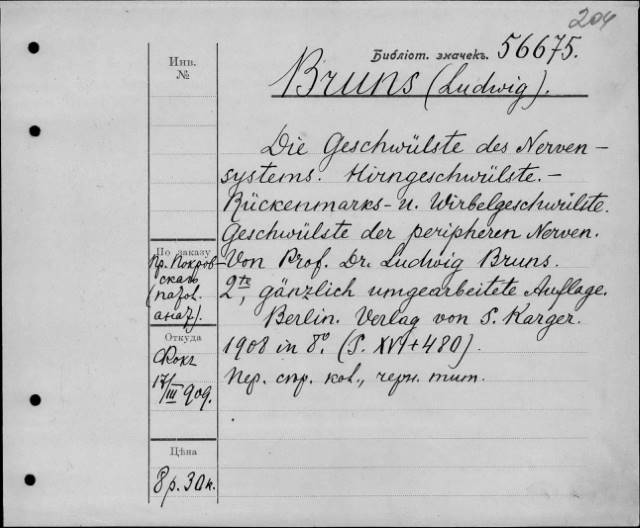 204
Библіот. значекъ. 56675.
Инв.
№
Bruns (Ludwig).
Die Geschwülste des Nerven-
systems. Hirngeschwülste.-
Rückenmarks- u. Wirbelgeschwülste.
Geschwülste der peripheren Nerven.
Von Prof. Dr. Ludwig Bruns.
2te, gänzlich umgearbeitete Auflage.
Berlin. Verlag von S. Karger.
1908 in 8°. (S. XVI+480).
Пер. стр. ков., черн. тит.
По заказу
Пр. Покров-
скаго
(патол.
анат.).
Откуда
17/III 909.
Цѣна
8 р. 30 к.